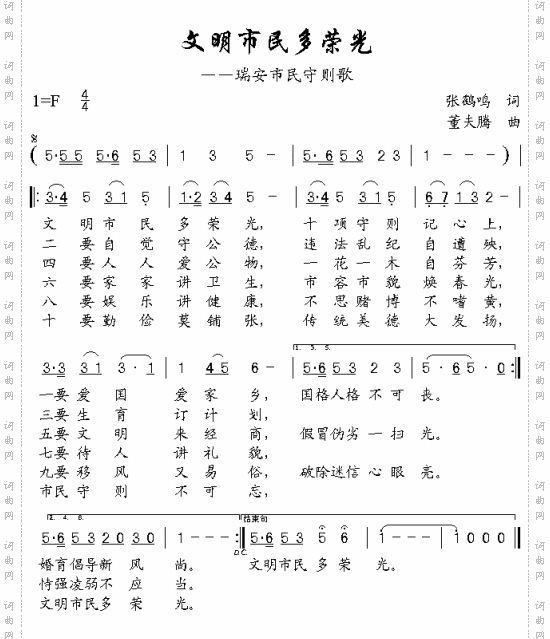 文明市民多荣光
——瑞安市民守则歌
1=F 4/4
张鹤鸣 词
董夫腾 曲
( 5·5 5 5·6 5 3 | 1 3 5 - | 5· 6 5 3 2 3 | 1 - - - ) |
3·4 5 3 1 5 | 1·2 3 4 5 - | 3·4 5 3 1 5 | 6 7 1 3 2 - |
文 明 市 民 多 荣 光, 十 项 守 则 记 心 上,
二 要 自 觉 守 公 德, 违 法 乱 纪 自 遭 殃,
四 要 人 人 爱 公 物, 一 花 一 木 自 芬 芳,
六 要 家 家 讲 卫 生, 市 容 市 貌 焕 春 光,
八 要 娱 乐 讲 健 康, 不 思 赌 博 不 嗜 黄,
十 要 勤 俭 莫 铺 张, 传 统 美 德 大 发 扬,
1. 3. 5.
3·3 3 1 3 · 1 | 1 4 5 6 - | 5·6 5 3 2 3 | 5 · 6 5 · 0 :||
一要 爱 国 爱 家 乡, 国格人格 不 可 丧。
三要 生 育 订 计 划,
五要 文 明 来 经 商, 假冒伪劣 一 扫 光。
七要 待 人 讲 礼 貌,
九要 移 风 又 易 俗, 破除迷信 心 眼 亮。
市民 守 则 不 可 忘,
2. 4. 6. 结束句
5·6 5 3 2 0 3 0 | 1 - - - :|| 5·6 5 3 5 6 | 1 - - - | 1 0 0 0 ||
D.C.
婚育倡导新 风 尚。 文明市民 多 荣 光。
恃强凌弱不 应 当。
文明市民多 荣 光。
词曲网
词曲网
词曲网
词曲网
词曲网
词曲网
词曲网
词曲网
词曲网
词曲网
词曲网